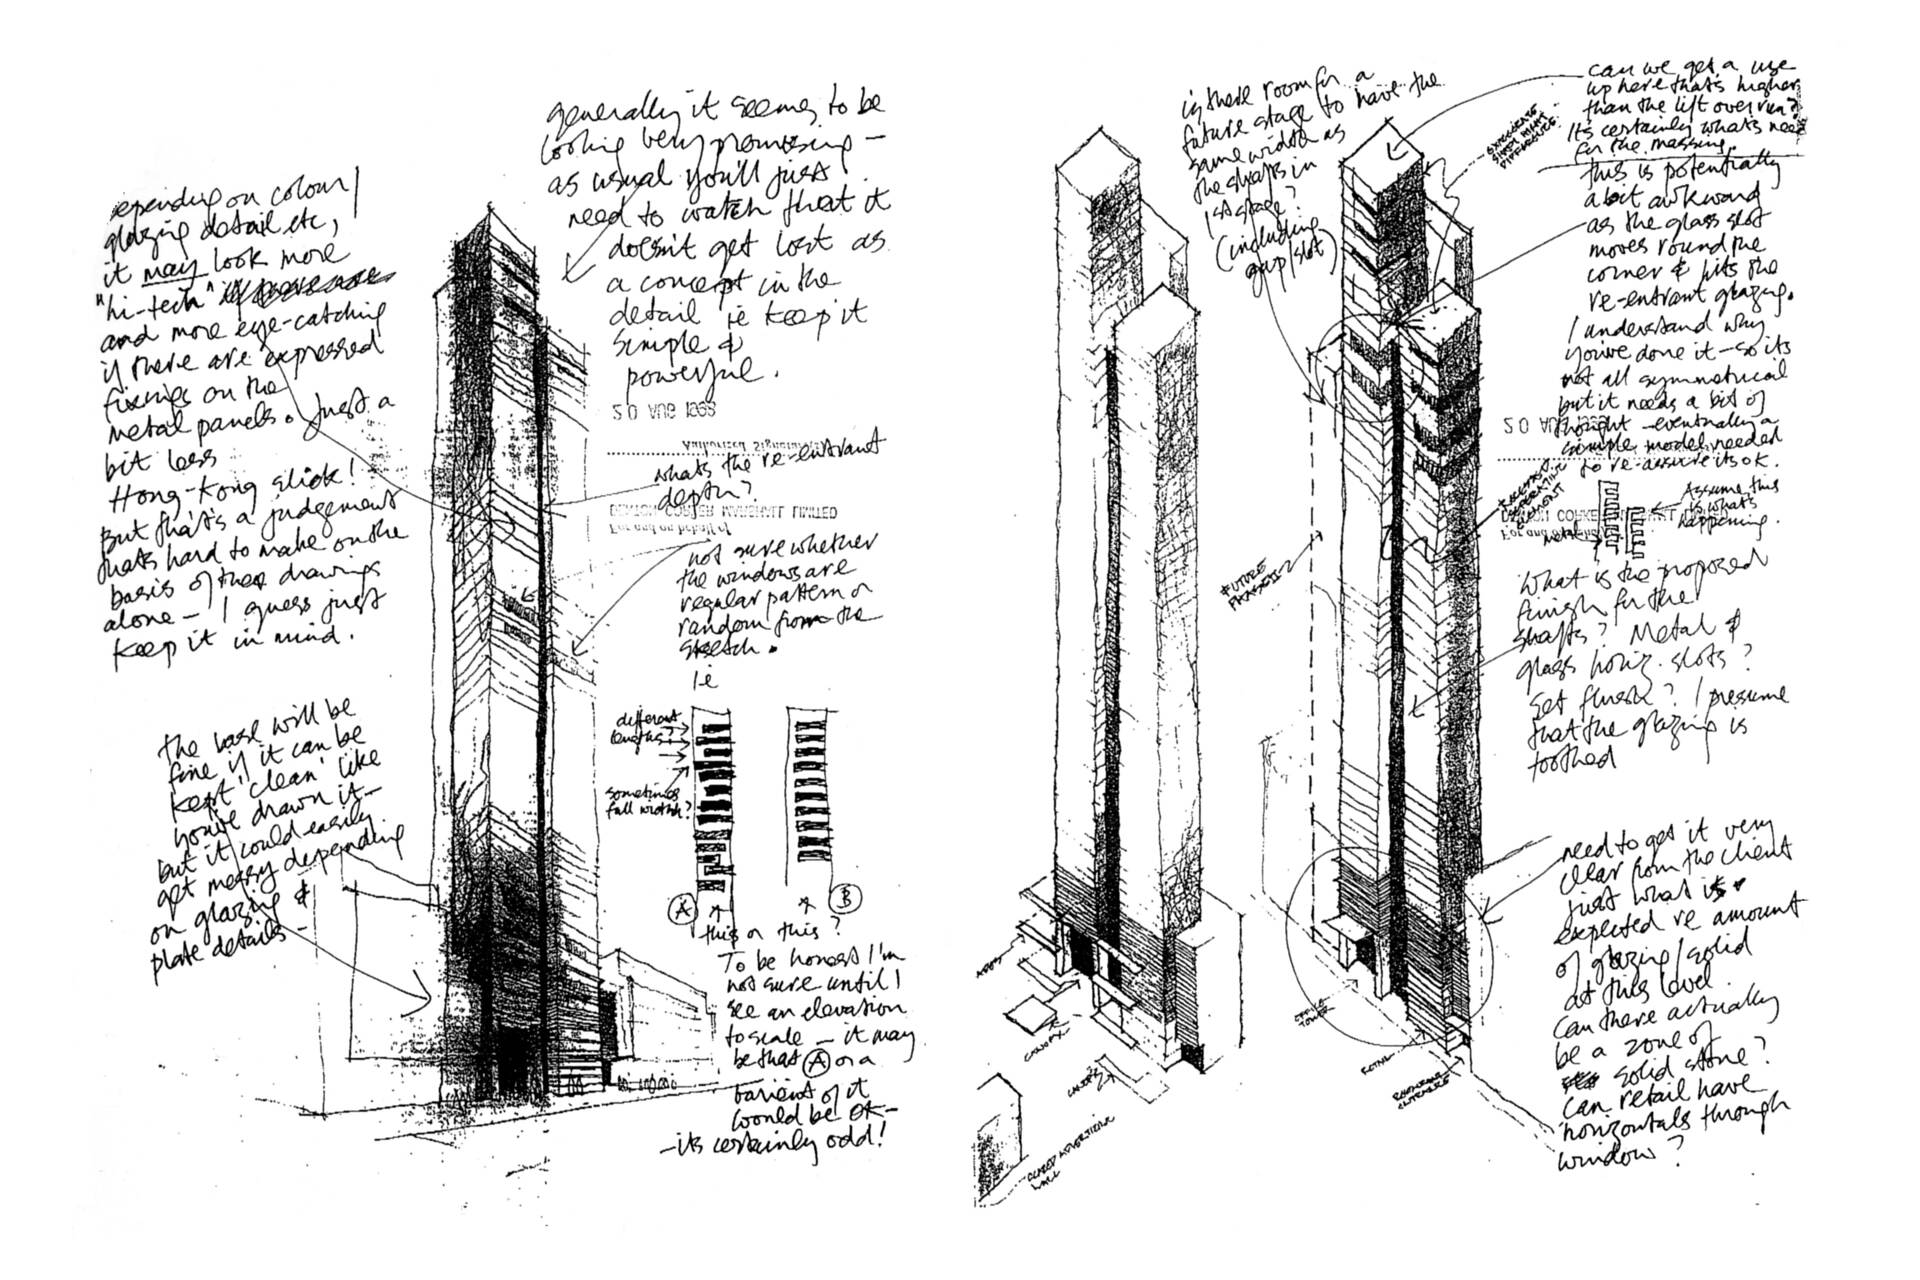 generally it seems to be
looking very promising —
as usual you'll just
need to watch that it
doesn't get lost as
a concept in the
detail ie keep it
simple &
powerful.
epending on colour/
glazing detail etc,
it may look more
"hi-tech"
and more eye-catching
if there are expressed
fixings on the
metal panels. Just a
bit less
Hong-Kong slick!
But that's a judgement
thats hard to make on the
basis of these drawings
alone – I guess just
keep it in mind.
the base will be
fine if it can be
kept 'clean' like
you've drawn it –
but it could easily
get messy depending
on glazing &
plate details –
20 AUG 1998
Authorised Signature
whats the re-entrant
depth?
DENTON CORKER MARSHALL LIMITED
For and on behalf of
not sure whether
the windows are
regular pattern or
random from the
sketch.
ie
different
lengths?
sometimes
full width?
A
B
this or this?
To be honest I'm
not sure until I
see an elevation
to scale – it may
be that A or a
varient of it
would be OK –
– its certainly odd!
is there room for a
future stage to have the
same width as
the shafts in
1st stage?
(including
gap/slot)
can we get a use
up here thats higher
than the lift over run?
Its certainly whats need
for the massing.
this is potentially
a bit awkward
as the glass slot
moves round the
corner & hits the
re-entrant glazing.
I understand why
you've done it – so its
not all symmetrical
but it needs a bit of
thought – eventually a
simple model needed
to re-assure its ok.
20 AUG
Assume this
is what's
happening.
DENTON CORKER MARSHALL LIMITED
For and on behalf
What is the proposed
finish for the
shafts? Metal &
glass horiz. slots?
Set flush? I presume
that the glazing is
toothed
FUTURE
need to get it very
clear from the client
just what is
expected re amount
of glazing/solid
at this level
Can there actually
be a zone of
solid stone?
Can retail have
horizontals through
window?
OFFICE
TOWER
RETAIL
CANOPY
WALL